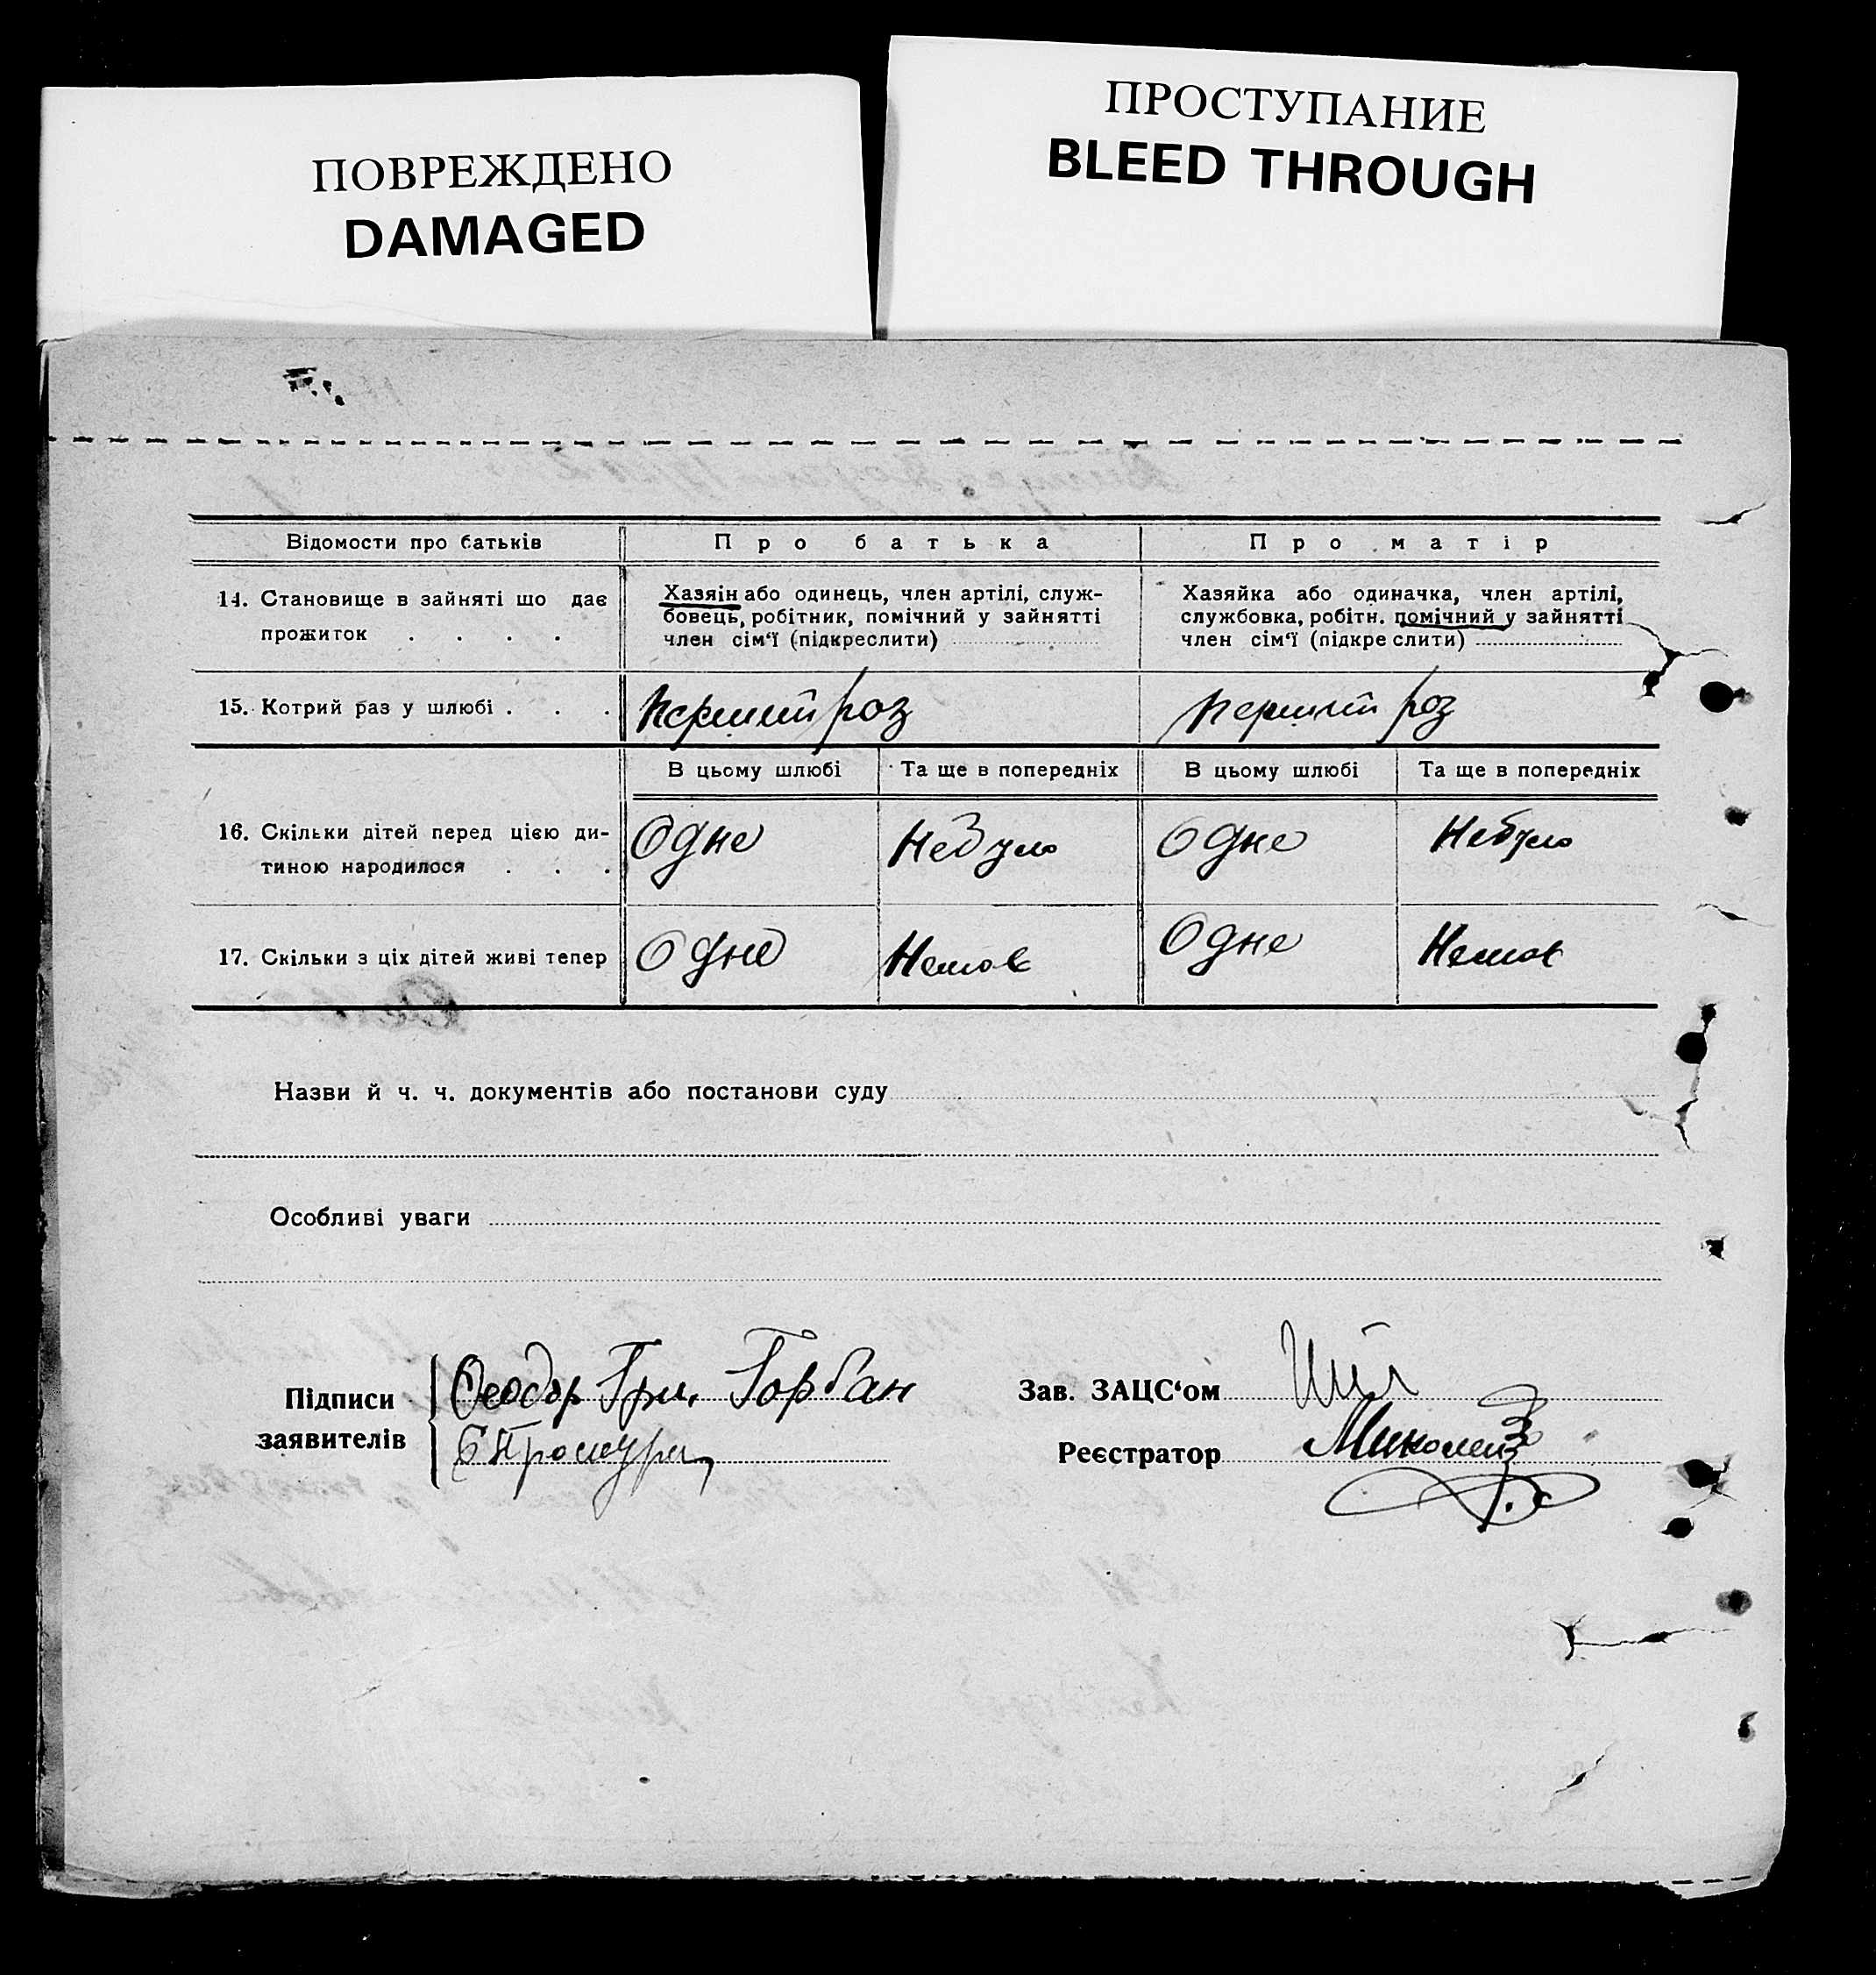 ПОВРЕЖДЕНО
DAMAGED
ПРОСТУПАНИЕ
BLEED THROUGH
Відомости про батьків
Про батька
Про матір
14. Становище в зайняті що дає
прожиток . . . .
Хазяін або одинець, член артілі, служ-
бовець, робітник, помічний у зайнятті
член сім'ї (підкреслити)
Хазяйка або одиначка, член артілі,
службовка, робітн. помічний у зайнятті
член сім'ї (підкре слити)
15. Котрий раз у шлюбі . . .
перший роз
перший роз
В цьому шлюбі
Та ще в попередніх
В цьому шлюбі
Та ще в попередніх
16. Скільки дітей перед цією ди-
тиною народилося . . .
Одне
Небуло
Одне
Небуло
17. Скільки з ціх дітей живі тепер
Одне
Немає
Одне
Немає
Назви й ч. ч. документів або постанови суду
Особливі уваги
Підписи
заявителів
Феодор Гри. Горбан
Зав. ЗАЦС'ом
Реєстратор